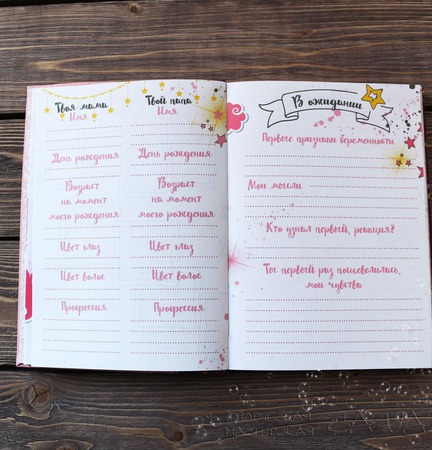 Твоя мама
Имя
День рождения
Возраст
на момент
моего рождения
Цвет глаз
Цвет волос
Профессия
Твой папа
Имя
День рождения
Возраст
на момент
моего рождения
Цвет глаз
Цвет волос
Профессия
В ожидании
Первые признаки беременности
Мои мысли
Кто узнал первый, реакция?
Ты первый раз пошевелилась,
мои чувства